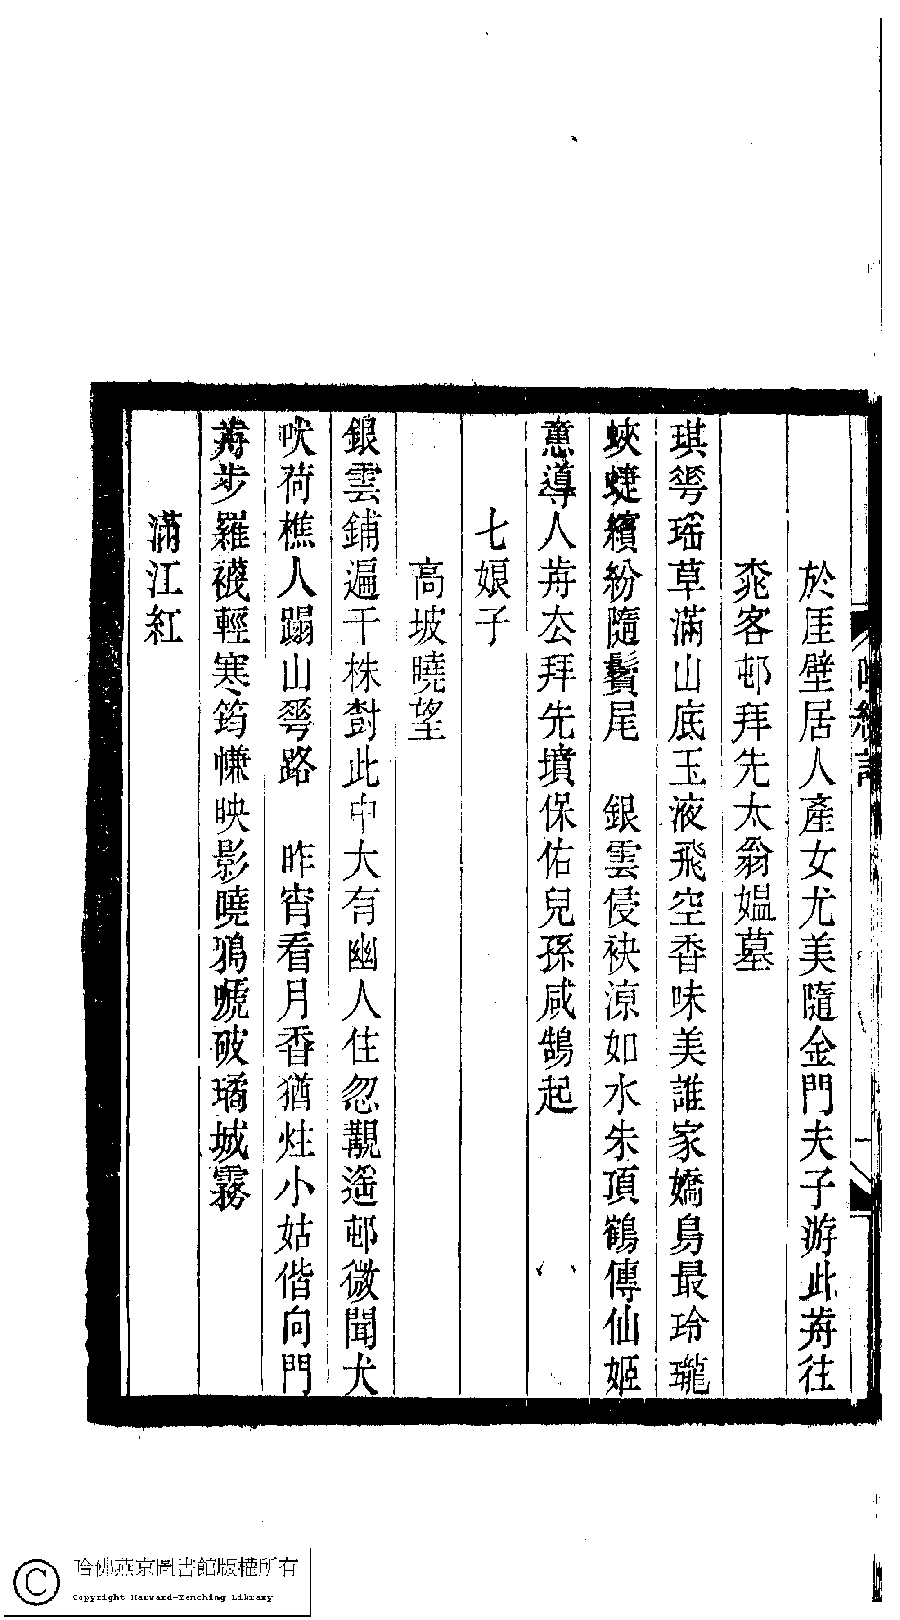 於厓壁居人產女尤美隨金門夫子游此歬往
棾客邨拜先太翁媼墓
琪𠌶瑶草滿山底玉液飛空香味美誰家嬌鳥最玲瓏
蛺蜨繽紛隨鬢尾　銀雲侵袂涼如水朱頂鶴傳仙姬
意導人歬厺拜先墳保佑兒孫咸鵲起
七娘子
高坡曉望
銀雲鋪遍干株對此中大有幽人住忽覯遙邨微聞犬
吠荷樵人蹋山𠌶路　昨宵看月香猶炷小姑偕向門
歬步羅襪輕寒筠㡘映影曉鴉嗁破璚城霧
滿江紅
哈佛燕京圖書館版權所有
Copyright Harvard-Yenching Library